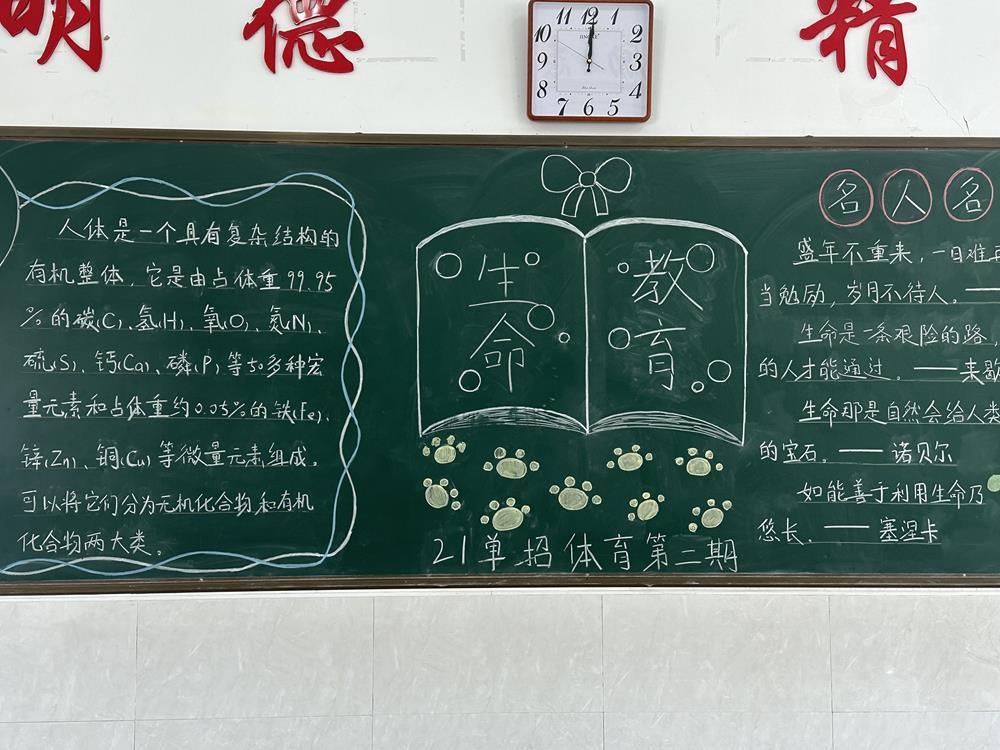 明德 精
11 12 1
10 2
9 3
8 4
7 6 5
人体是一个具有复杂结构的
有机整体，它是由占体重99.95
%的碳(C)、氢(H)、氧(O)、氮(N)、
硫(S)、钙(Ca)、磷(P)等50多种宏
量元素和占体重约0.05%的铁(Fe)、
锌(Zn)、铜(Cu)等微量元素组成。
可以将它们分为无机化合物和有机
化合物两大类。
生命
教育
21单招体育第二期
名人名
盛年不重来，一日难再
当勉励，岁月不待人。——
生命是一条艰险的路，
的人才能通过。——来歇
生命那是自然会给人类
的宝石。——诺贝尔
如能善于利用生命乃
悠长。——塞涅卡